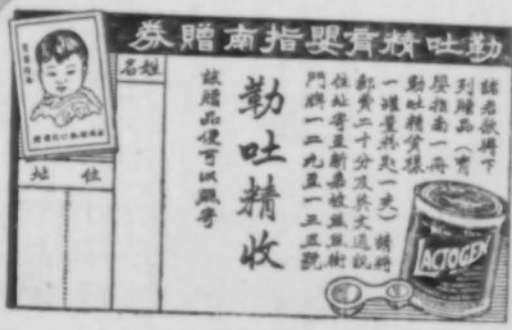 勒吐精育嬰指南贈券
諸君欲得下
列贈品(育
嬰指南一冊
勒吐精貨樣
一罐 請將
郵費二十分及英文通訊
住址寄至新嘉坡 街
門牌一二九至一三五號
勒吐精收
該贈品便可以照寄
姓名
住址
育嬰指南
LACTOGEN